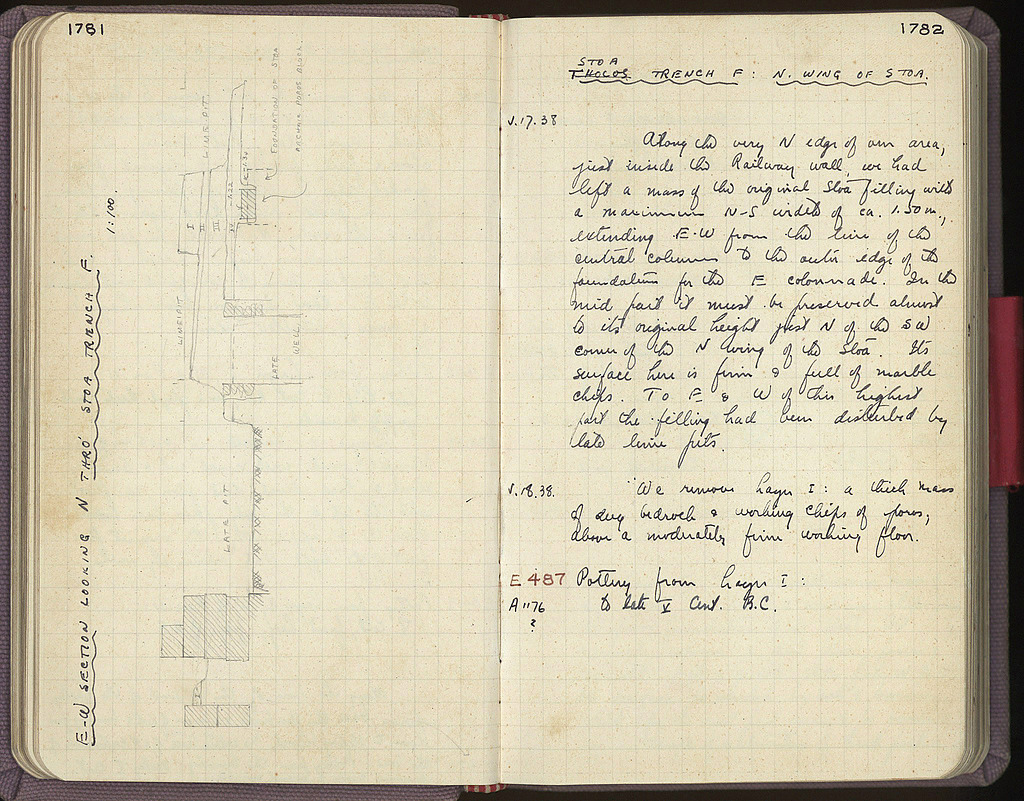 1781
E-W SECTION LOOKING N THRO' STOA TRENCH F.
1:100.
LIMEPIT
I
II
III
IV
LIME PIT
A.22
1.34
FOUNDATION OF STOA
ARCHAIC POROS BLOCK
LATE
WELL
LATE PIT
I
1782
STOA
THOLOS TRENCH F: N. WING OF STOA.
V.17.38
Along the very N edge of our area,
just inside the Railway wall, we had
left a mass of the original Stoa filling with
a maximum N-S width of ca. 1.50 m.,
extending E-W from the line of the
central columns to the outer edge of the
foundation for the E colonnade. In the
mid part it must be preserved almost
to its original height just N of the SW
corner of the N wing of the Stoa. Its
surface here is firm & full of marble
chips. To E & W of this highest
part the filling had been disturbed by
late lime pits.
V.18.38.
We remove Layer I: a thick mass
of dug bedrock & working chips of poros,
above a moderately firm working floor.
E 487 Pottery from Layer I:
A 1176 to late V Cent. B.C.
?